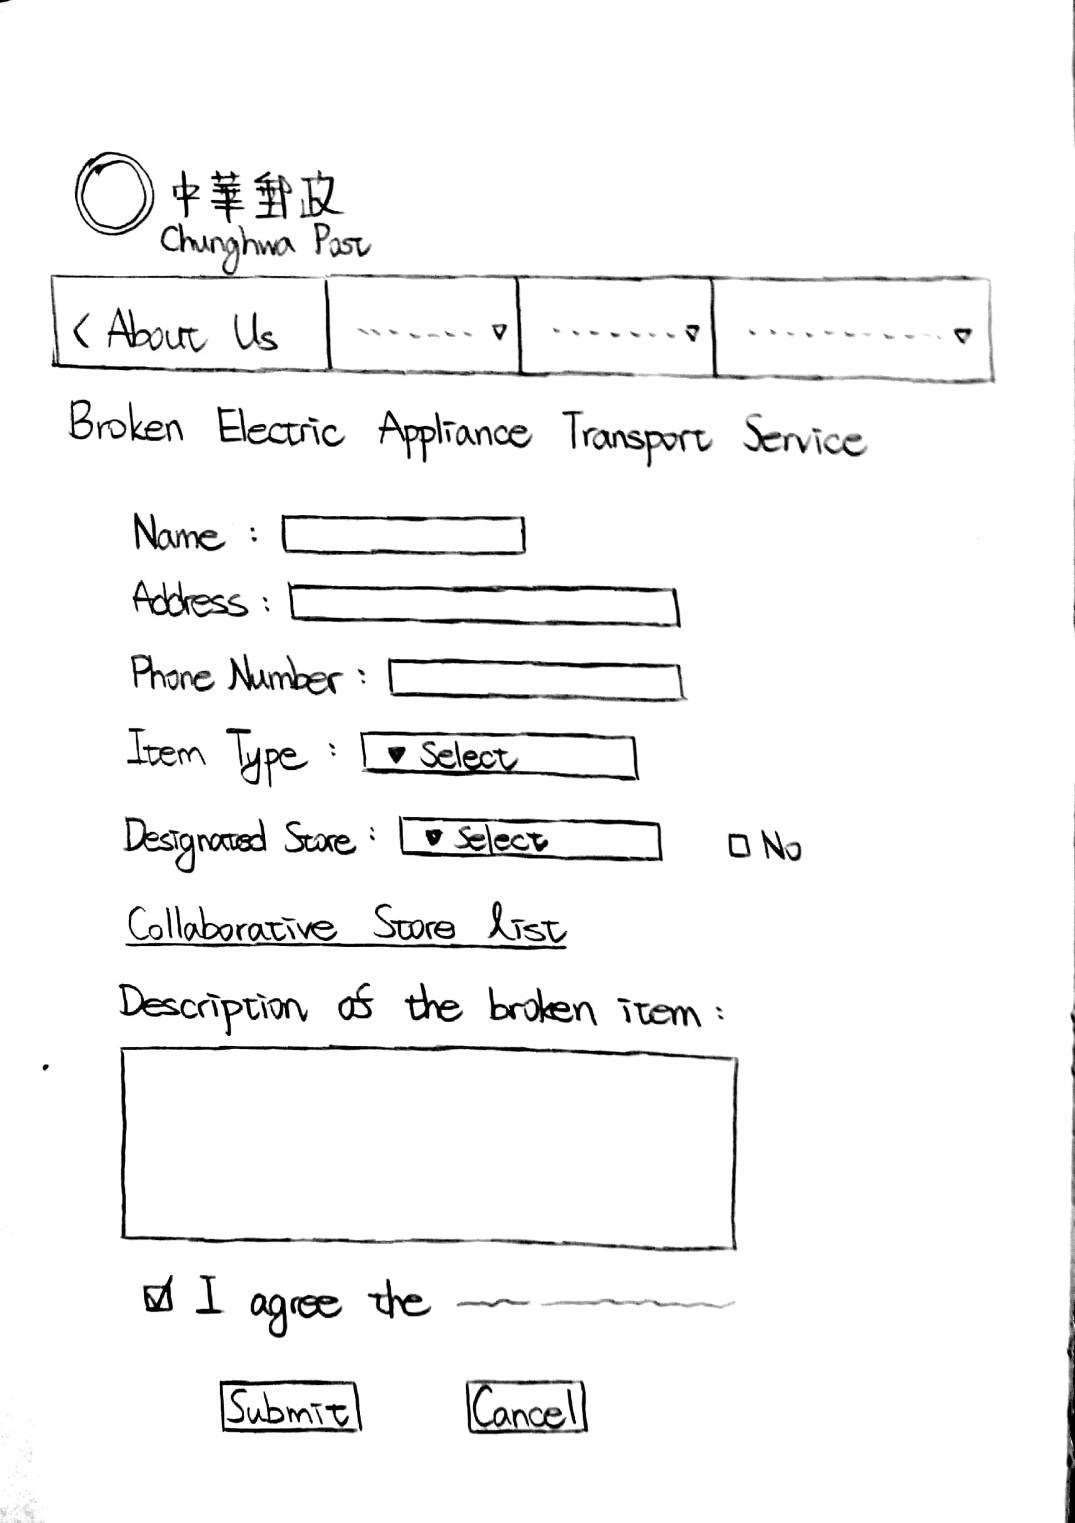 中華郵政
Chunghwa Post
< About Us
Broken Electric Appliance Transport Service
Name :
Address :
Phone Number :
Item Type : ▼ Select
Designated Store : ▼ Select □ No
Collaborative Store list
Description of the broken item :
☑ I agree the
Submit Cancel